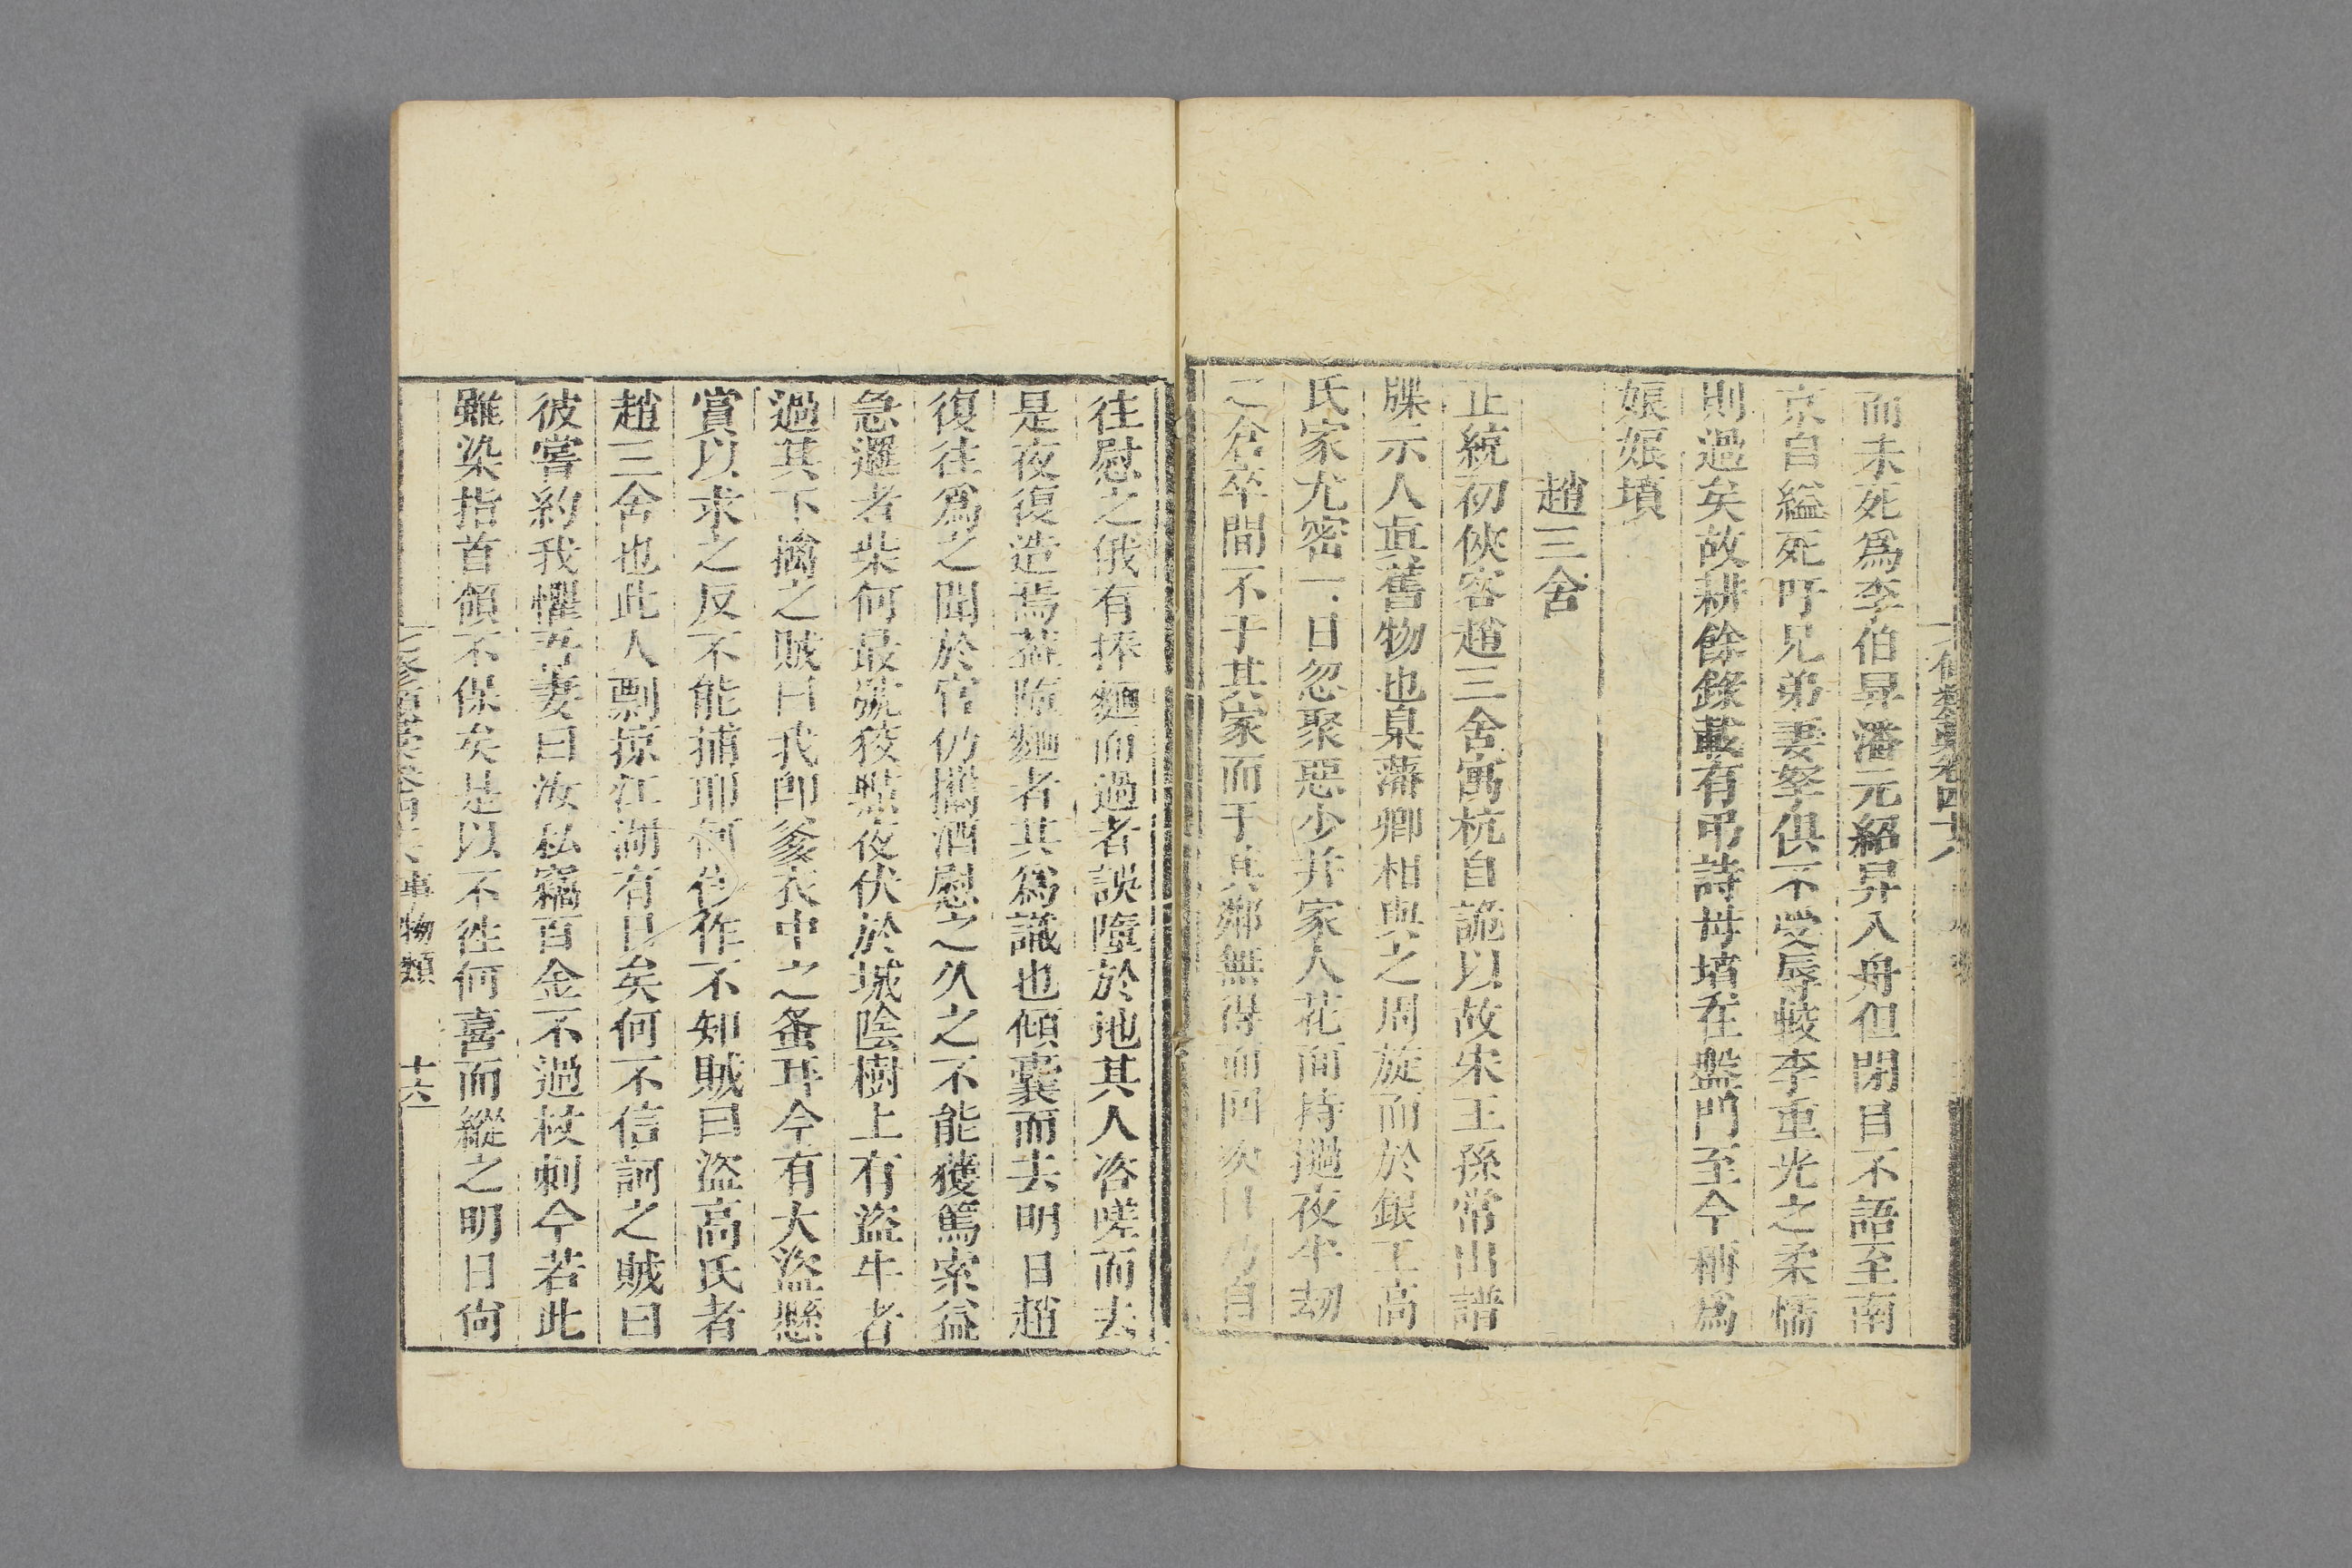 而未死爲李伯昇潘元紹昇入舟但閉目不語至南
京自縊死吁兄弟妻孥俱不受辱較李重光之柔懦
則過矣故耕餘錄載有弔詩母墳在盤門至今稱爲
娘娘墳
趙三舍
正統初俠客趙三舍寓杭自詭以故宋王孫常出譜
牒示人眞舊物也臬藩卿相與之周旋而於銀工高
氏家尤密一日忽聚惡少并家人花面持撾夜半刼
之倉卒間不于其家而于其鄰無得而回次日乃自
往慰之俄有捧麵而過者誤墮於地其人咨嗟而去
是夜復造焉葢墮麵者其爲識也傾囊而去明日趙
復往爲之聞於官仍攜酒慰之久之不能獲篤索益
急邏者柴何最號狡黠夜伏於城陰樹上有盜牛者
過其下擒之賊曰我卽爹衣中之蚤耳今有大盜懸
賞以求之反不能捕耶何佯作不知賊曰盜高氏者
趙三舍也此人剽掠江湖有日矣何不信訶之賊曰
彼嘗約我懼吾妻曰汝私竊百金不過杖刺今若此
雖染指首領不保矣是以不徃何喜而縱之明日俏
事物類 十六